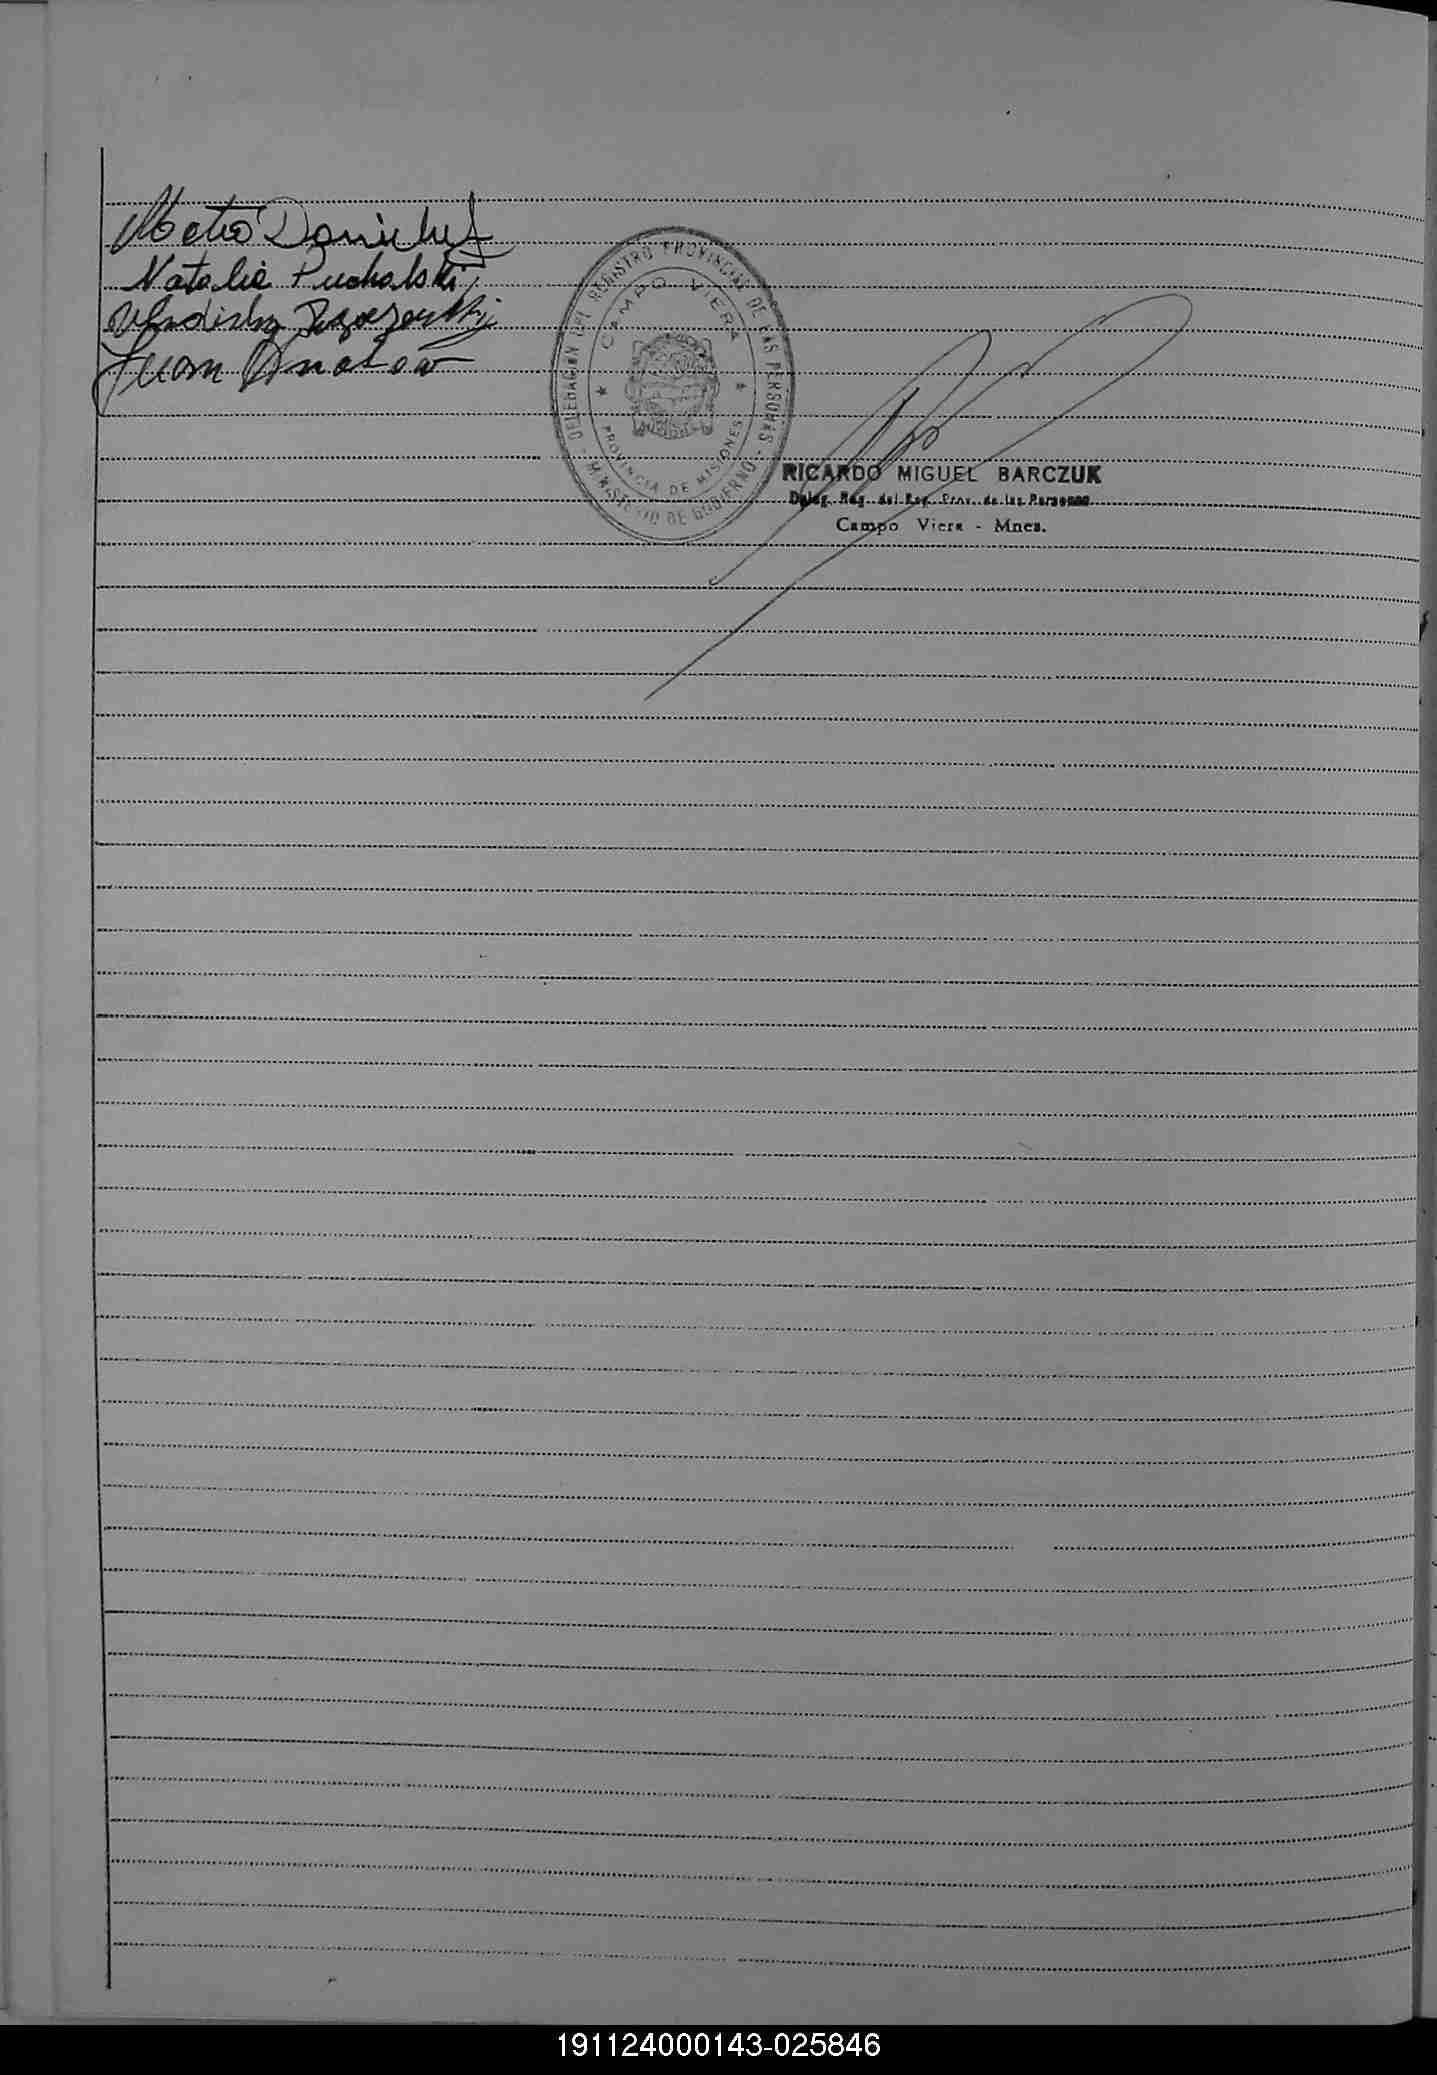 Natalia Puchalski
Juan
DELEGACION DEL REGISTRO PROVINCIAL DE LAS PERSONAS
- MINISTERIO DE GOBIERNO -
CAMPO VIERA
PROVINCIA DE MISIONES
RICARDO MIGUEL BARCZUK
Deleg. Reg. del Reg. Prov. de las Personas
Campo Viera - Mnes.
191124000143-025846